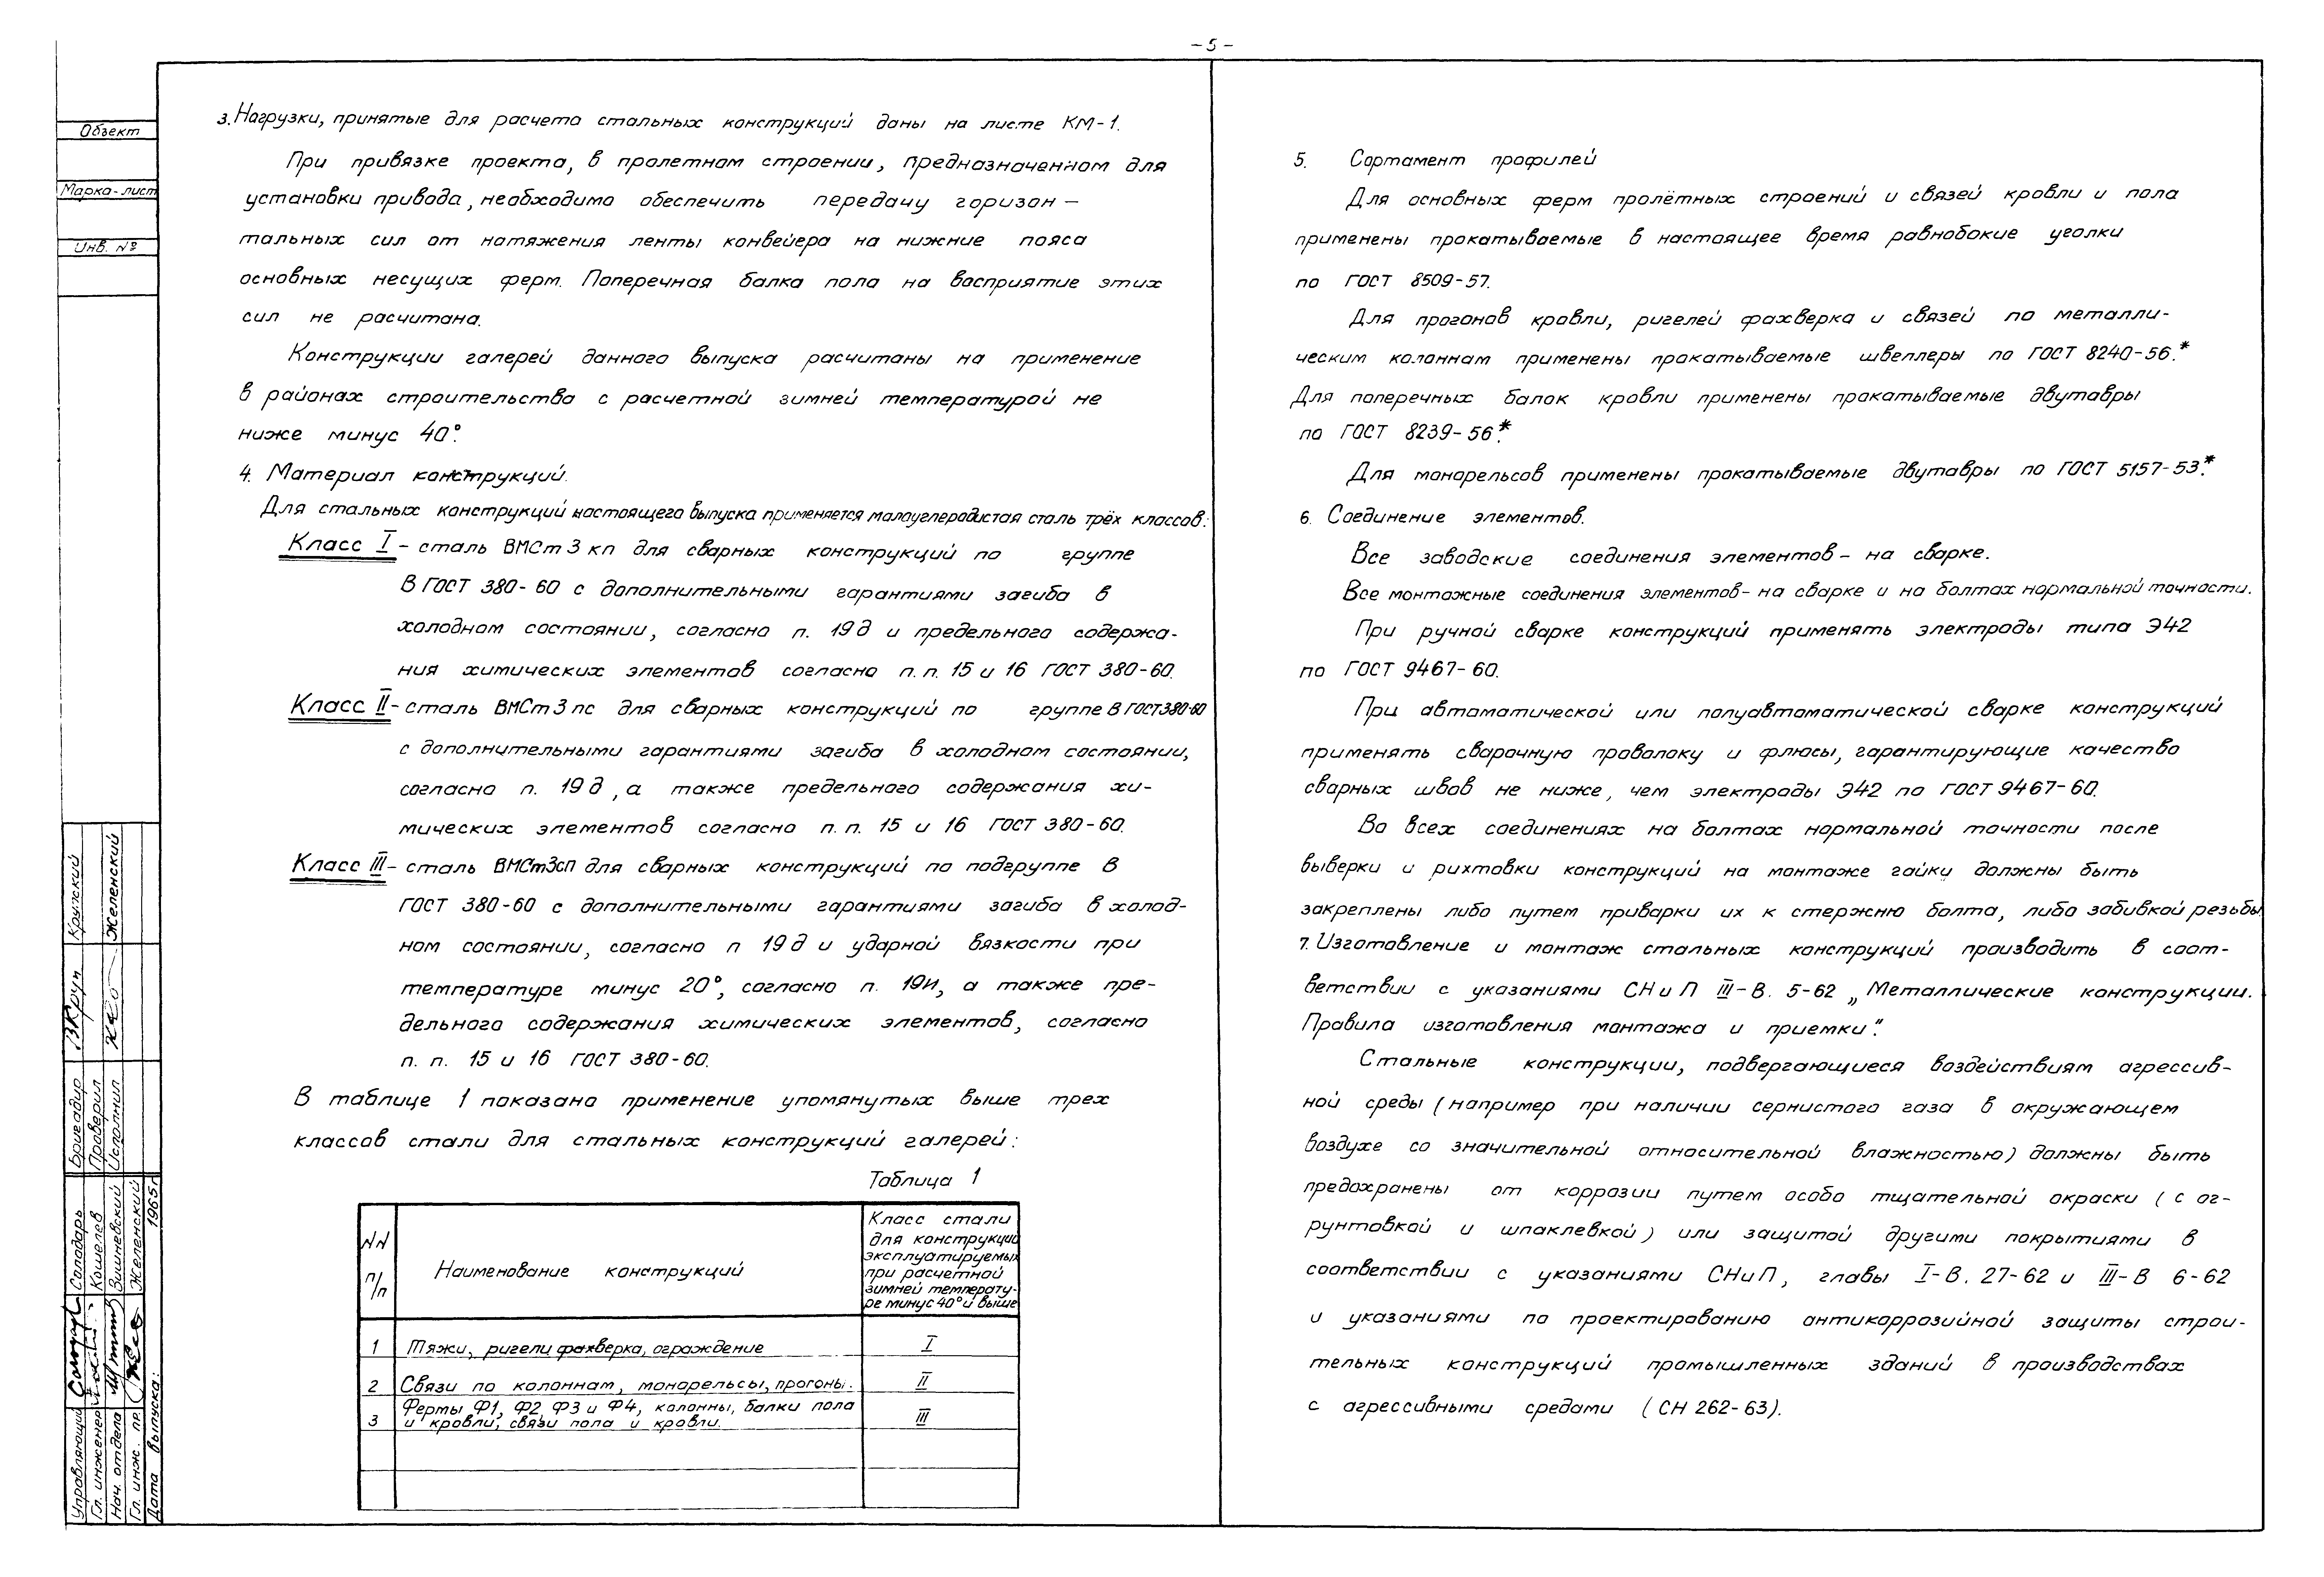 - 5 -
Объект
Марка-лист
Инв. №
3. Нагрузки, принятые для расчета стальных конструкций даны на листе КМ-1.
При привязке проекта, в пролетном строении, предназначенном для
установки привода, необходимо обеспечить передачу горизон-
тальных сил от натяжения ленты конвейера на нижние пояса
основных несущих ферм. Поперечная балка пола на восприятие этих
сил не расчитана.
Конструкции галерей данного выпуска расчитаны на применение
в районах строительства с расчетной зимней температурой не
ниже минус 40°.
4. Материал конструкций.
Для стальных конструкций настоящего выпуска применяется малоуглеродистая сталь трёх классов:
Класс I - сталь ВМСт3кп для сварных конструкций по группе
В ГОСТ 380-60 с дополнительными гарантиями загиба в
холодном состоянии, согласно п. 19д и предельного содержа-
ния химических элементов согласно п.п. 15 и 16 ГОСТ 380-60.
Класс II - сталь ВМСт3пс для сварных конструкций по группе В ГОСТ 380-60
с дополнительными гарантиями загиба в холодном состоянии,
согласно п. 19д, а также предельного содержания хи-
мических элементов согласно п.п. 15 и 16 ГОСТ 380-60.
Класс III - сталь ВМСт3сп для сварных конструкций по подгруппе В
ГОСТ 380-60 с дополнительными гарантиями загиба в холод-
ном состоянии, согласно п 19д и ударной вязкости при
температуре минус 20°, согласно п. 19и, а также пре-
дельного содержания химических элементов, согласно
п. п. 15 и 16 ГОСТ 380-60.
В таблице 1 показано применение упомянутых выше трех
классов стали для стальных конструкций галерей:
Таблица 1
NN п/п
Наименование конструкций
Класс стали
для конструкций
эксплуатируемых
при расчетной
зимней температу-
ре минус 40° и выше
1 Тяжи, ригели фахверка, ограждение I
2 Связи по колоннам, монорельсы, прогоны. II
Фермы Ф1, Ф2, Ф3 и Ф4, колонны, балки пола
3 и кровли, связи пола и кровли. III
5. Сортамент профилей
Для основных ферм пролётных строений и связей кровли и пола
применены прокатываемые в настоящее время равнобокие уголки
по ГОСТ 8509-57.
Для прогонов кровли, ригелей фахверка и связей по металли-
ческим колоннам применены прокатываемые швеллеры по ГОСТ 8240-56*.
Для поперечных балок кровли применены прокатываемые двутавры
по ГОСТ 8239-56*.
Для монорельсов применены прокатываемые двутавры по ГОСТ 5157-53*.
6. Соединение элементов.
Все заводские соединения элементов - на сварке.
Все монтажные соединения элементов - на сварке и на болтах нормальной точности.
При ручной сварке конструкций применять электроды типа Э42
по ГОСТ 9467-60.
При автоматической или полуавтоматической сварке конструкций
применять сварочную проволоку и флюсы, гарантирующие качество
сварных швов не ниже, чем электроды Э42 по ГОСТ 9467-60.
Во всех соединениях на болтах нормальной точности после
выверки и рихтовки конструкций на монтаже гайки должны быть
закреплены либо путем приварки их к стержню болта, либо забивкой резьбы
7. Изготовление и монтаж стальных конструкций производить в соот-
ветствии с указаниями СНиП III-В. 5-62 „Металлические конструкции.
Правила изготовления монтажа и приемки".
Стальные конструкции, подвергающиеся воздействиям агрессив-
ной среды (например при наличии сернистого газа в окружающем
воздухе со значительной относительной влажностью) должны быть
предохранены от коррозии путем особо тщательной окраски (с ог-
рунтовкой и шпаклевкой) или защитой другими покрытиями в
соответствии с указаниями СНиП, главы I-В. 27-62 и III-В 6-62
и указаниями по проектированию антикоррозийной защиты строи-
тельных конструкций промышленных зданий в производствах
с агрессивными средами (СН 262-63).
Управляющий Солодарь
Гл. инженер Кошелев
Нач. отдела Вишневский
Гл. инж. пр. Желенский
Дата выпуска: 1965г.
Бригадир Крупский
Проверил
Исполнил Желенский